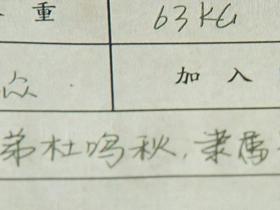 重 63KG
众 加入
弟杜鸣秋，隶属